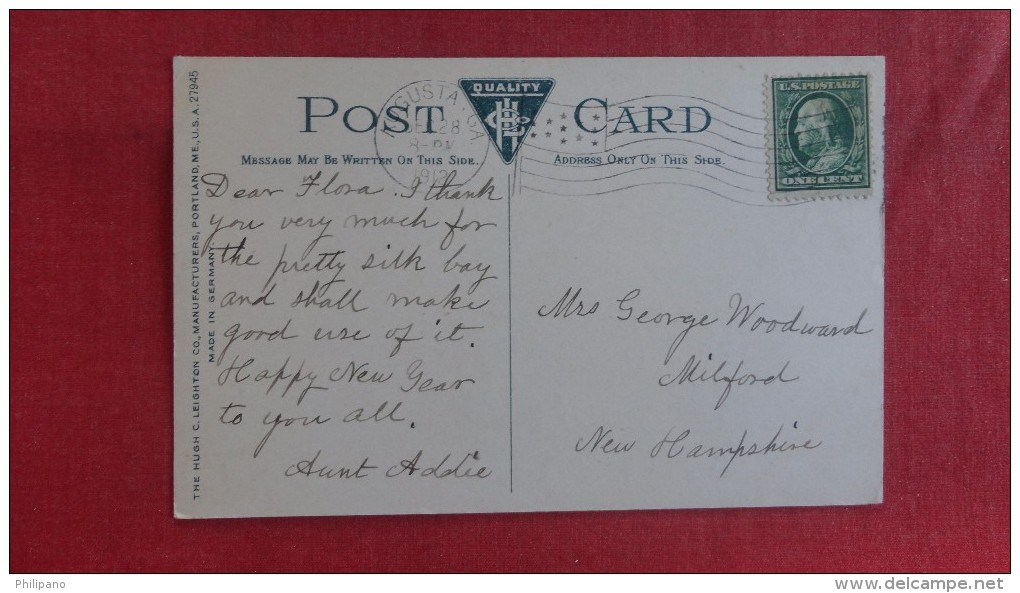 THE HUGH C. LEIGHTON CO., MANUFACTURERS, PORTLAND, ME., U.S.A. 27945
MADE IN GERMANY.
POST CARD
QUALITY
MESSAGE MAY BE WRITTEN ON THIS SIDE.
ADDRESS ONLY ON THIS SIDE.
AUGUSTA. GA.
28
8-PM
1912
U.S. POSTAGE
ONE CENT
Dear Flora. I thank
you very much for
the pretty silk bag
and shall make
good use of it.
Happy New Year
to you all.
Aunt Addie
Mrs George Woodward
Milford
New Hampshire
Philipano
www.delcampe.net